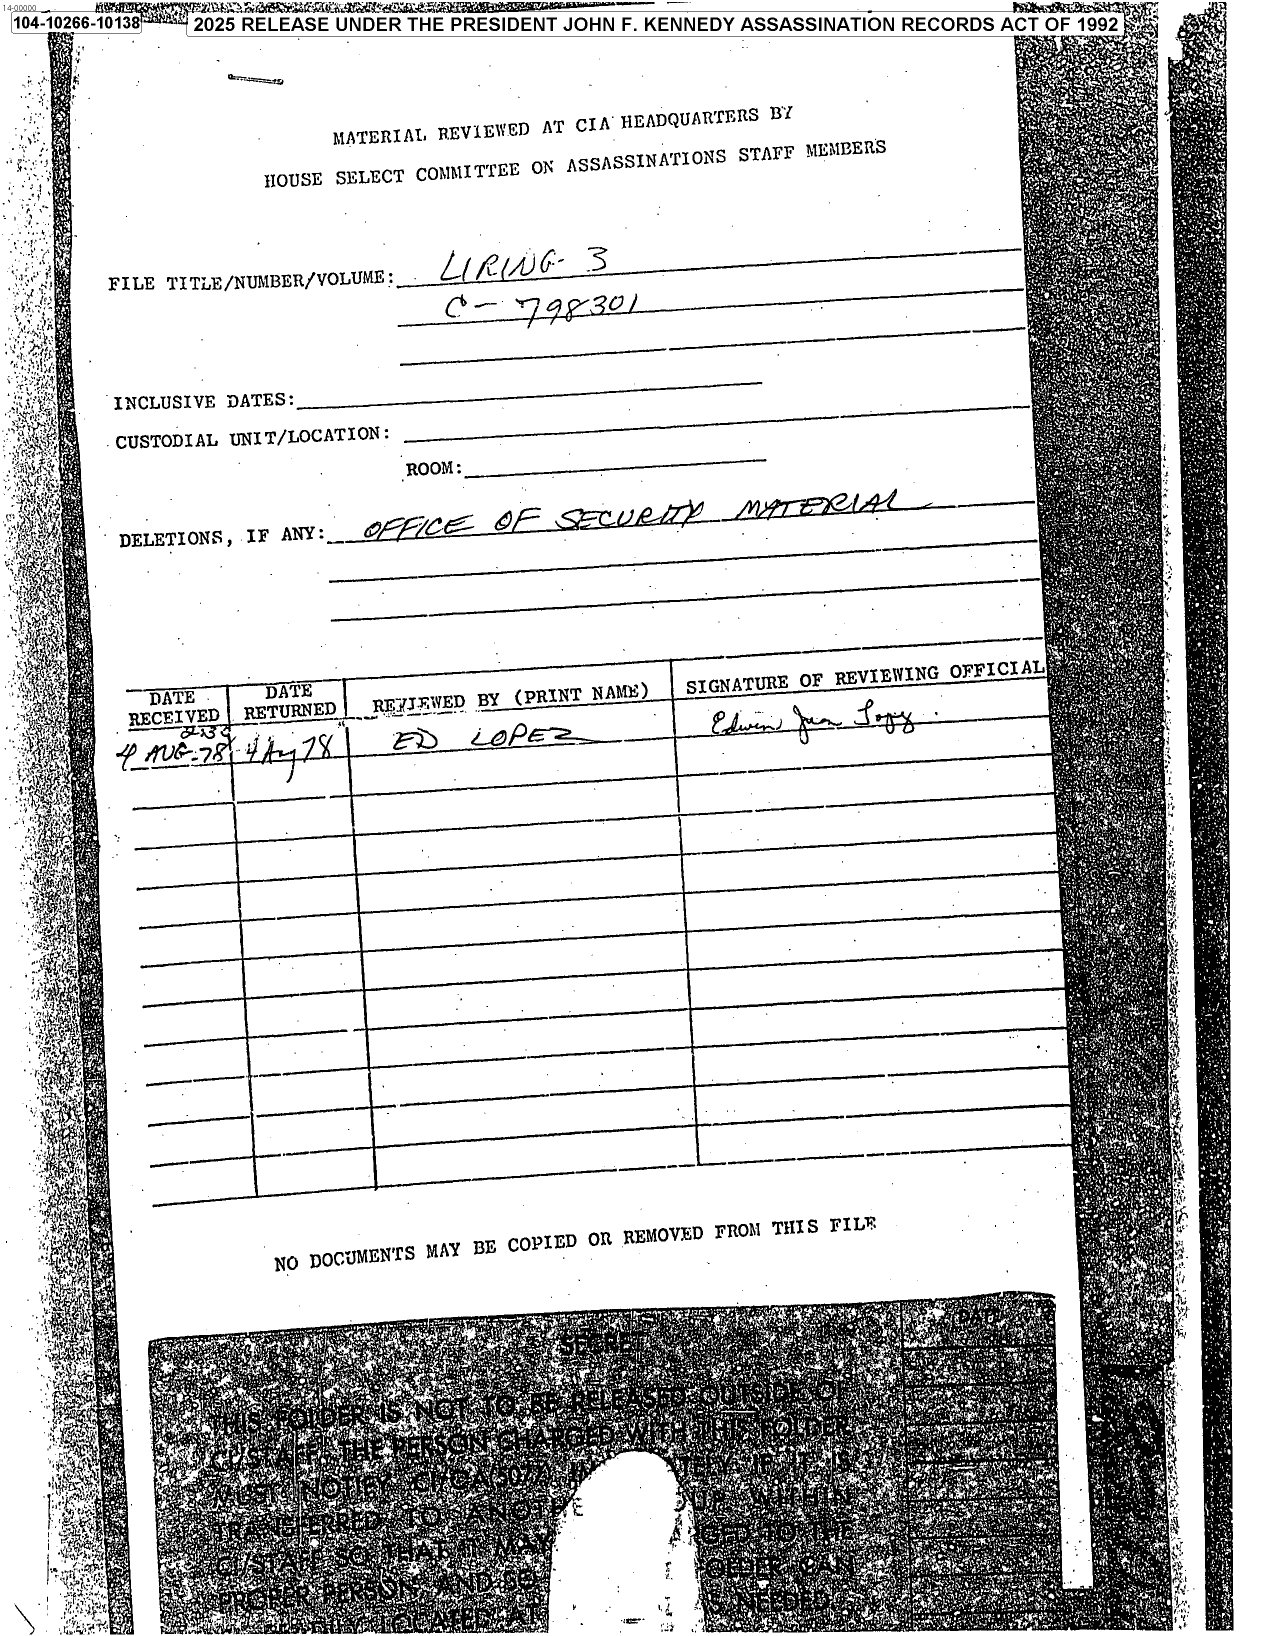 14-00000
104-10266-10138
2025 RELEASE UNDER THE PRESIDENT JOHN F. KENNEDY ASSASSINATION RECORDS ACT OF 1992
MATERIAL REVIEWED AT CIA HEADQUARTERS BY
HOUSE SELECT COMMITTEE ON ASSASSINATIONS STAFF MEMBERS
FILE TITLE/NUMBER/VOLUME: LIRING-3
C-798301
INCLUSIVE DATES:
CUSTODIAL UNIT/LOCATION:
ROOM:
DELETIONS, IF ANY: OFFICE OF SECURITY MATERIAL
DATE RECEIVED DATE RETURNED REVIEWED BY (PRINT NAME) SIGNATURE OF REVIEWING OFFICIAL
4 AUG-78 4 Aug 78 ED LOPEZ Edwin Juan Lopez
NO DOCUMENTS MAY BE COPIED OR REMOVED FROM THIS FILE
SECRET
DATE
THIS FOLDER IS NOT TO BE RELEASED OUTSIDE OF
CI/STAFF. THE PERSON CHARGED WITH THIS FOLDER
MUST NOTIFY IF IT IS
TRANSFERRED TO WITHIN
CI/STAFF SO THAT IT MAY TO THE
PROPER PERSON AND CAN
LOCATED AT NEEDED